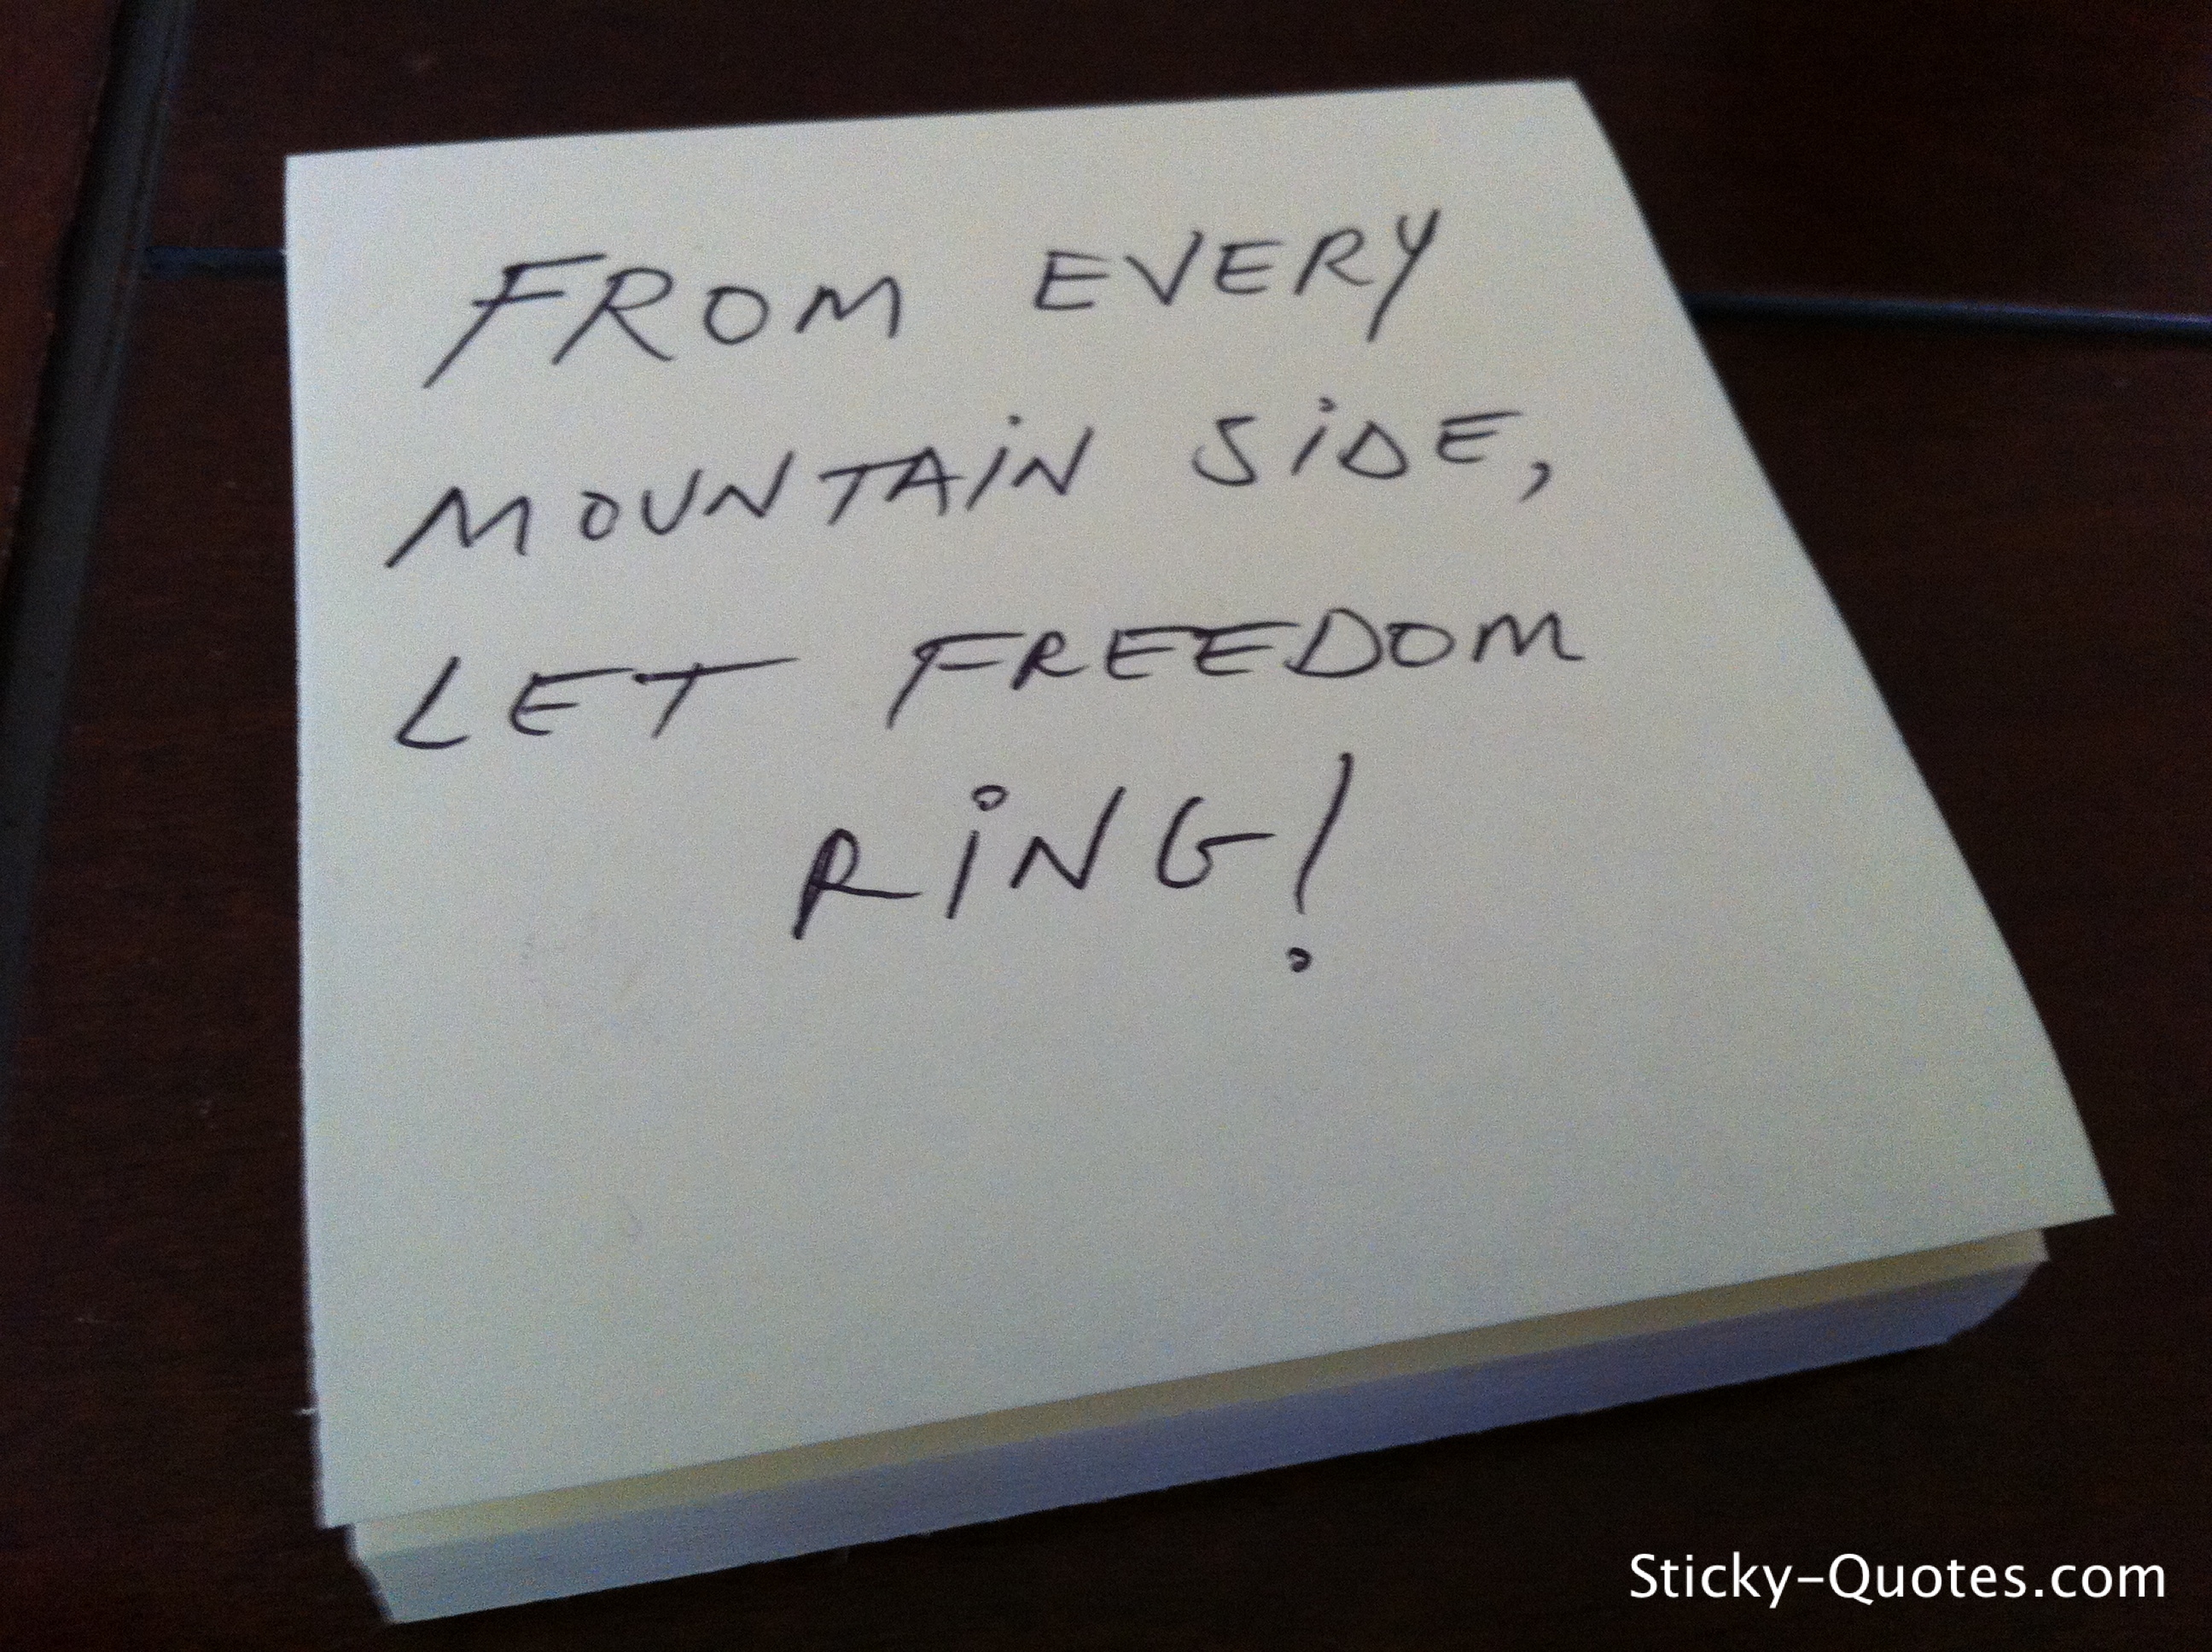 FROM EVERY
MOUNTAIN SiDE,
LET FREEDOM
RiNG!
Sticky-Quotes.com